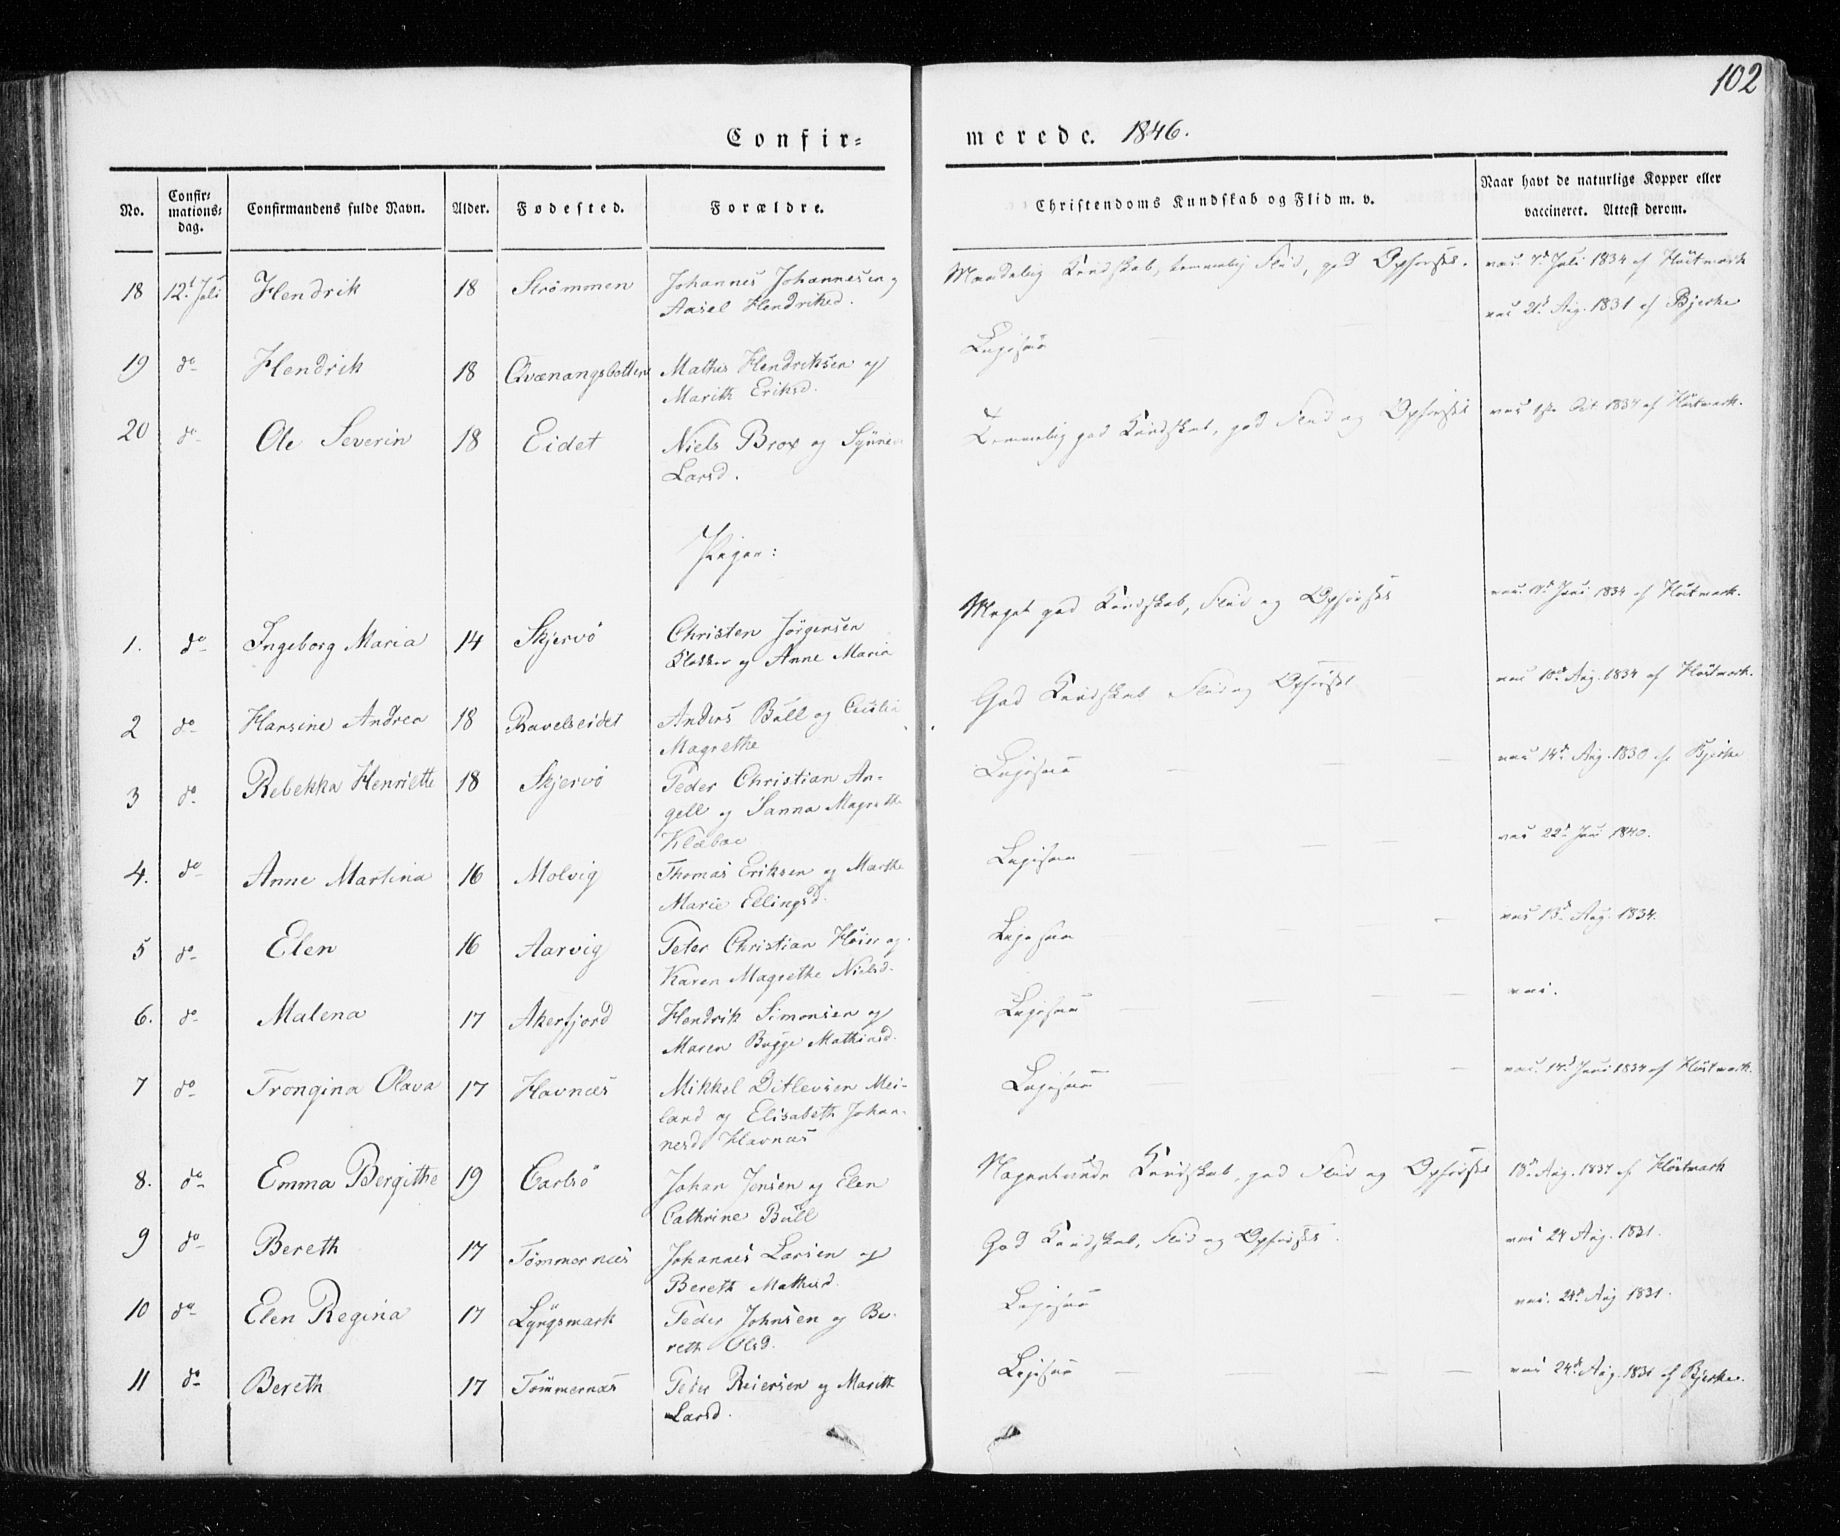 102
Confir=
merede. 1846.
No.
Confir=
mations=
dag.
Confirmandens fulde Navn.
Alder.
Fødested.
Forældre.
Christendoms Kundskab og Flid m. v.
Naar havt de naturlige Kopper eller
vaccineret. Attest derom.
18 12t Juli Hendrik 18 Strömmen Johannes Johannesen og
Aasel Hendriksd.
Maadelig Kundskab, temmelig Flid, god Opførsel.
vac 7d Juli 1834 af Hustmark
19 do Hendrik 18 Qvænangsbotten Mathis Hendriksen og
Marith Eriksd.
Ligesaa
vac 21d Aug. 1831 af Bjerke
20 do Ole Severin 18 Eidet Niels Brox og
Larsd.
Temmelig god Kundskab, god Flid og Opførsel
vac Oct 1834 af Hustmark.
Piger:
1. do Ingeborg Maria 14 Skjervö Christen Jörgensen
Klokker og Anne Maria
Meget god Kundskab, Flid og Opførsel
vac. Juni 1834 af Hustmark.
2 do Hansine Andrea 18 Ravelseidet Anders Bull og Cecilia
Magrethe
God Kundskab Flid og Opførsel
vac Aug. 1834 af Hustmark.
3 do Rebekka Henriette 18 Skjervö Peder Christian An-
gell og Sanna Magrethe
Klæboe
Ligesaa
vac 14d Aug. 1830 af Bjerke
4. do Anne Martina 16 Molvig Thomas Eriksen og Marthe
Marie Ellingsd.
Ligesaa
vac 22d Juni 1840.
5 do Elen 16 Aarvig Peter Christian Høier og
Karen Magrethe Nielsd.
Ligesaa
vac 13d Aug. 1834.
6. do Malena 17 Akerfjord Hendrik Simonsen og
Maren Bugge Mathiasd.
Ligesaa
vac.
7 do Trongina Olava 17 Havnæs Mikkel Ditlevsen Mei-
land og Elisabeth Johan-
nesd Havnæs
Ligesaa
vac. 14d Juni 1834 af Hustmark.
8. do Emma Bergithe 19 Carlsö Johan Jensen og Elen
Cathrine Bull
Nogenlunde Kundskab, god Flid og Opførsel
13d Aug. 1837 af Hustmark
9 do Bereth 17 Tömmernæs Johannes Larsen og
Bereth Mathisd.
God Kundskab, Flid og Opførsel.
vac 24 Aug. 1831.
10 do Elen Regina 17 Lyngsmark Peder Johnsen og Be-
reth Olsd.
Ligesaa
vac. 24d Aug 1831.
11 do Bereth 17 Tömmernæs Peder Reiersen og Marith
Larsd.
Ligesaa
vac 24d Aug. 1831 af Bjerke.